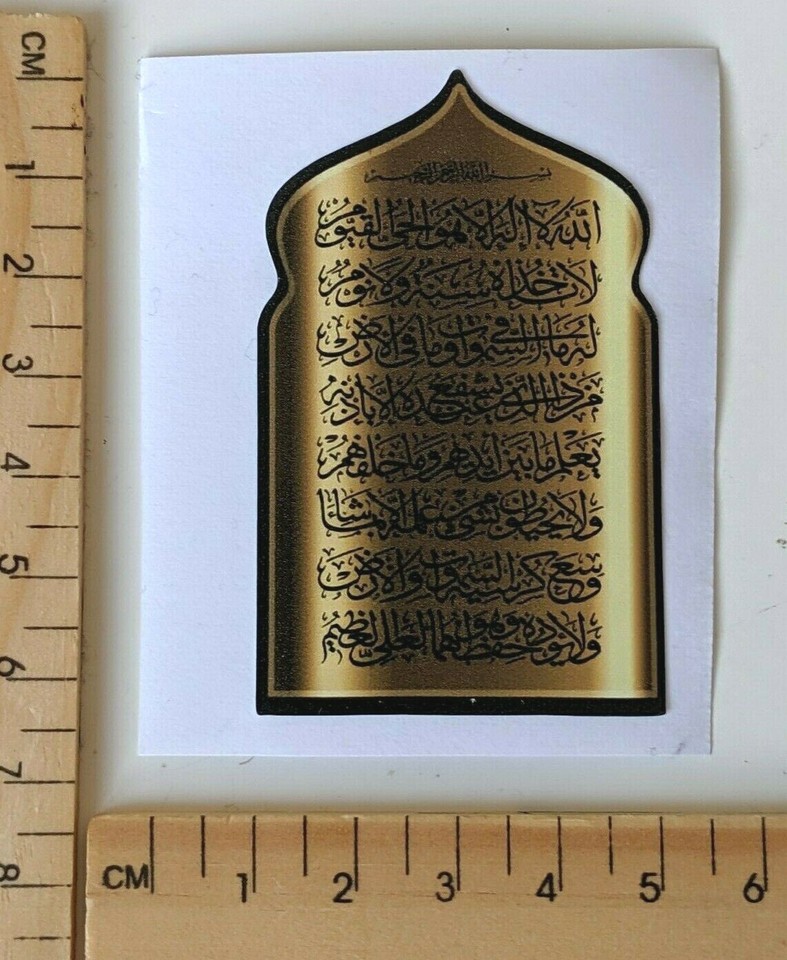 بسم الله الرحمن الرحيم
الله لا اله الا هو الحي القيوم
لا تاخذه سنة ولا نوم
له ما في السموات وما في الارض
من ذا الذي يشفع عنده الا باذنه
يعلم ما بين ايديهم وما خلفهم
ولا يحيطون بشيء من علمه الا بما شاء
وسع كرسيه السموات والارض
ولا يؤده حفظهما وهو العلي العظيم
CM
1
2
3
4
5
6
7
8
CM 1 2 3 4 5 6